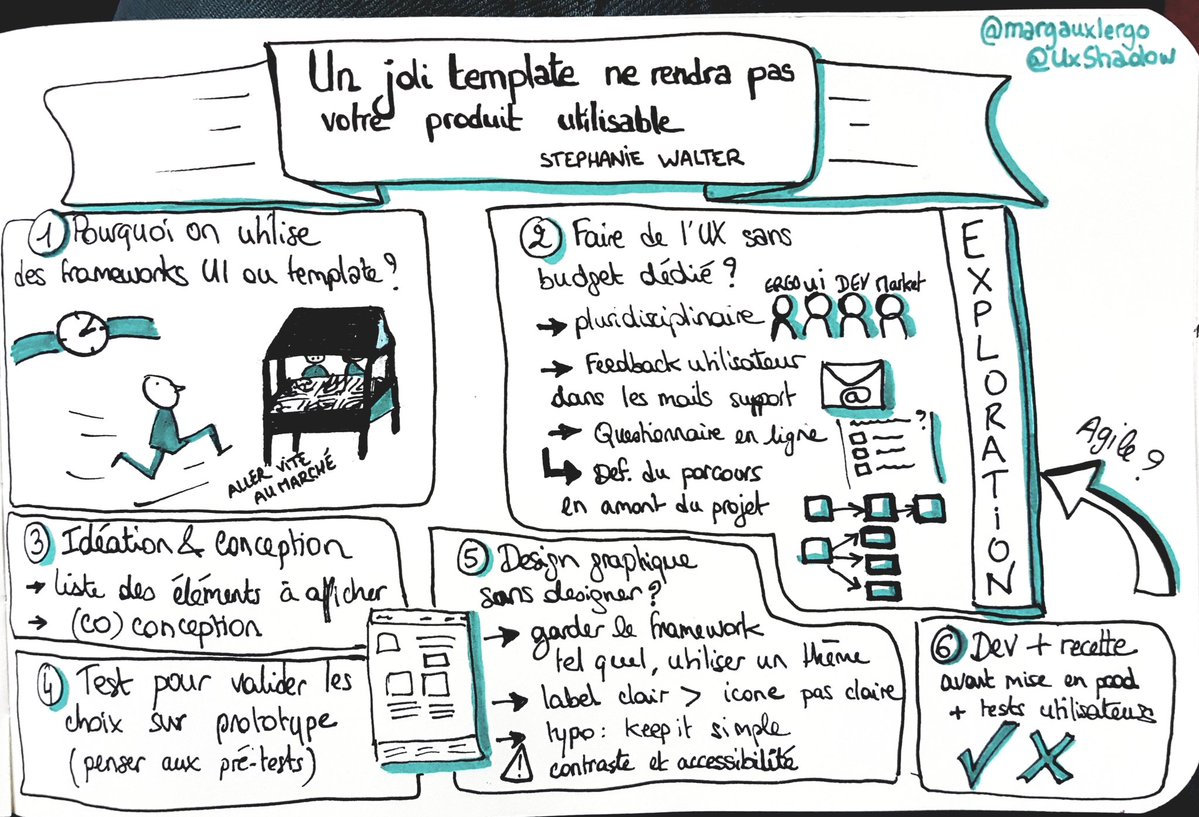 @margauxlergo
@UxShadow
Un joli template ne rendra pas
votre produit utilisable
STEPHANIE WALTER
1 Pourquoi on utilise
des frameworks UI ou template?
ALLER VITE
AU MARCHÉ
2 Faire de l'UX sans
budget dédié?
ERGO UI DEV Market
→ pluridisciplinaire
→ Feedback utilisateur
dans les mails support
@
→ Questionnaire en ligne
?
Def. du parcours
en amont du projet
EXPLORATION
Agile?
3 Idéation & conception
→ liste des éléments à afficher
→ (CO) conception
4 Test pour valider les
choix sur prototype
(penser aux pré-tests)
5 Design graphique
sans designer?
→ garder le framework
tel quel, utiliser un thème
→ label clair > icone pas claire
→ typo: keep it simple
! contraste et accessibilité
6 Dev + recette
avant mise en prod
+ tests utilisateurs